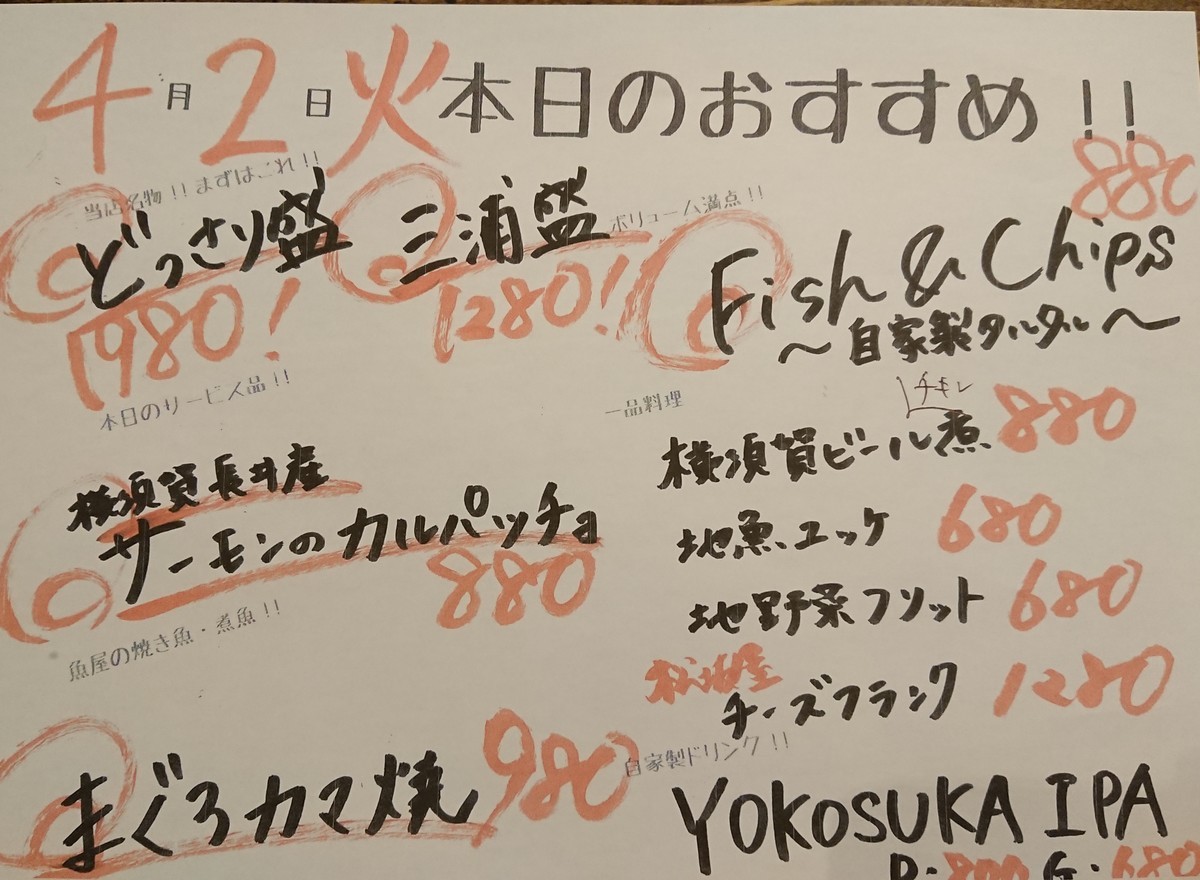 4月2日火本日のおすすめ!!
当店名物!!まずはこれ!!
どっさり盛
1980!
三浦盛
1280!
ボリューム満点!!
880
Fish & Chips
~自家製タルタル~
本日のサービス品!!
横須賀長井産
サーモンのカルパッチョ
880
魚屋の焼き魚・煮魚!!
まぐろカマ焼 980
一品料理
チキン
横須賀ビール煮 880
地魚ユッケ 680
地野菜フリット 680
松坂屋
チーズフランク 1280
自家製ドリンク!!
YOKOSUKA IPA
P・800 G・680